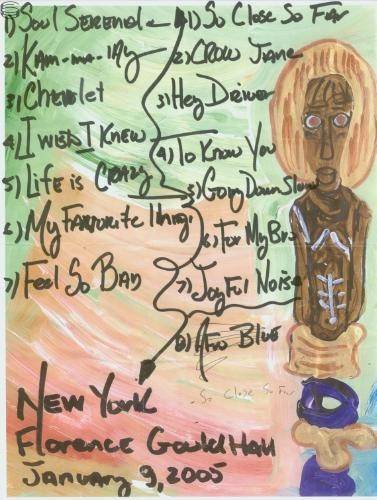 1) Soul Serenade
2) Kam-ma-lay
3) Chevrolet
4) I Wish I Knew
5) Life is Crazy
6) My Favorite Things
7) Feel So Bad
1) So Close So Far
2) Crow Jane
3) Hey Driver
4) To Know You
5) Going Down Slow
6) For My Bro
7) Joyful Noise
8) Afro Blue
So Close So Far
New York
Florence Gould Hall
January 9, 2005